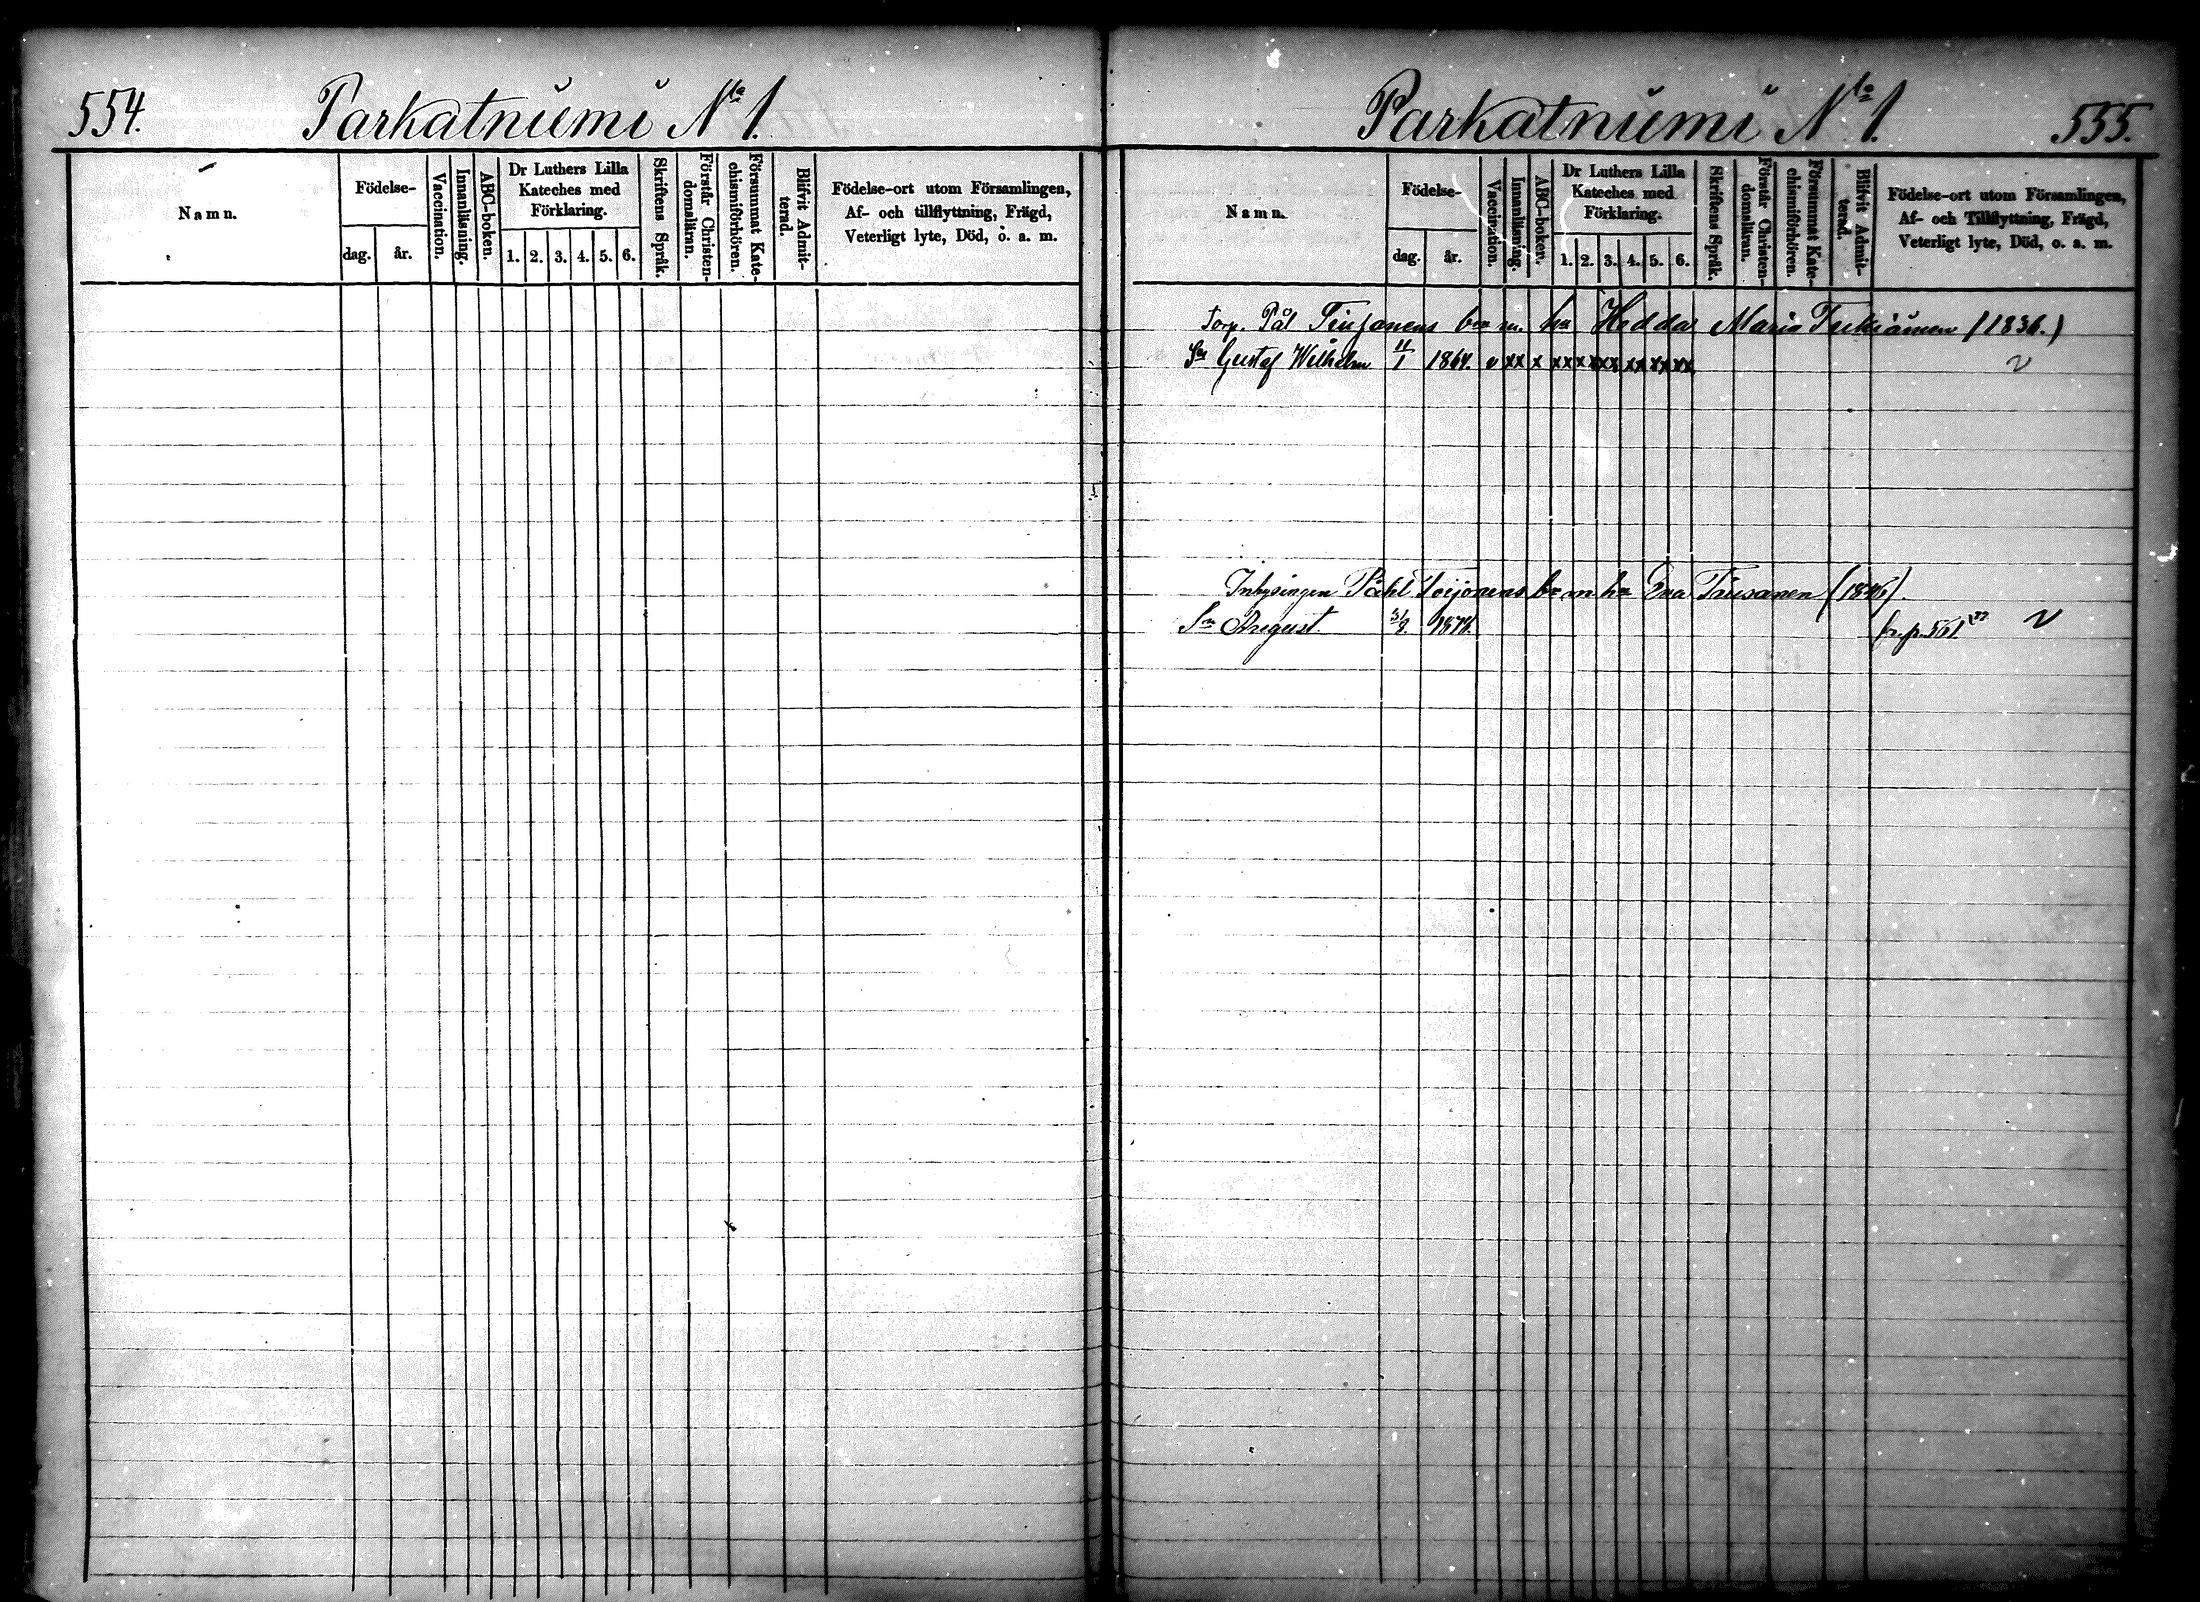 554.
Parkatniemi No 1.
Namn.
Födelse-
dag.
år.
Vaccination.
Innanläsning.
ABC-boken.
Dr Luthers Lilla
Kateches med
Förklaring.
1. 2. 3. 4. 5. 6.
Skriftens Språk.
Förstår Christen-
domsläran.
Försummat Kate-
chismiförhören.
Blifvit Admit-
terad.
Födelse-ort utom Församlingen,
Af- och tillflyttning, Frägd,
Veterligt lyte, Död, o. a. m.
Parkatniemi No 1.
555.
Namn.
Födelse-
dag.
år.
Vaccination.
Innanläsning.
ABC-boken.
Dr Luthers Lilla
Kateches med
Förklaring.
1. 2. 3. 4. 5. 6.
Skriftens Språk.
Förstår Christen-
domsläran.
Försummat Kate-
chismiförhören.
Blifvit Admit-
terad.
Födelse-ort utom Församlingen,
Af- och Tillflyttning, Frägd,
Veterligt lyte, Död, o. a. m.
Torp. Pål m. Hedda Maria (1836.)
Sn Gustaf Wilhelm 11/1 1864. v xx x xx xx xx xx xx xx
Inhysingen Påhl Toijonens b m h Eva
Sn August. 31/8. fr. p. 561